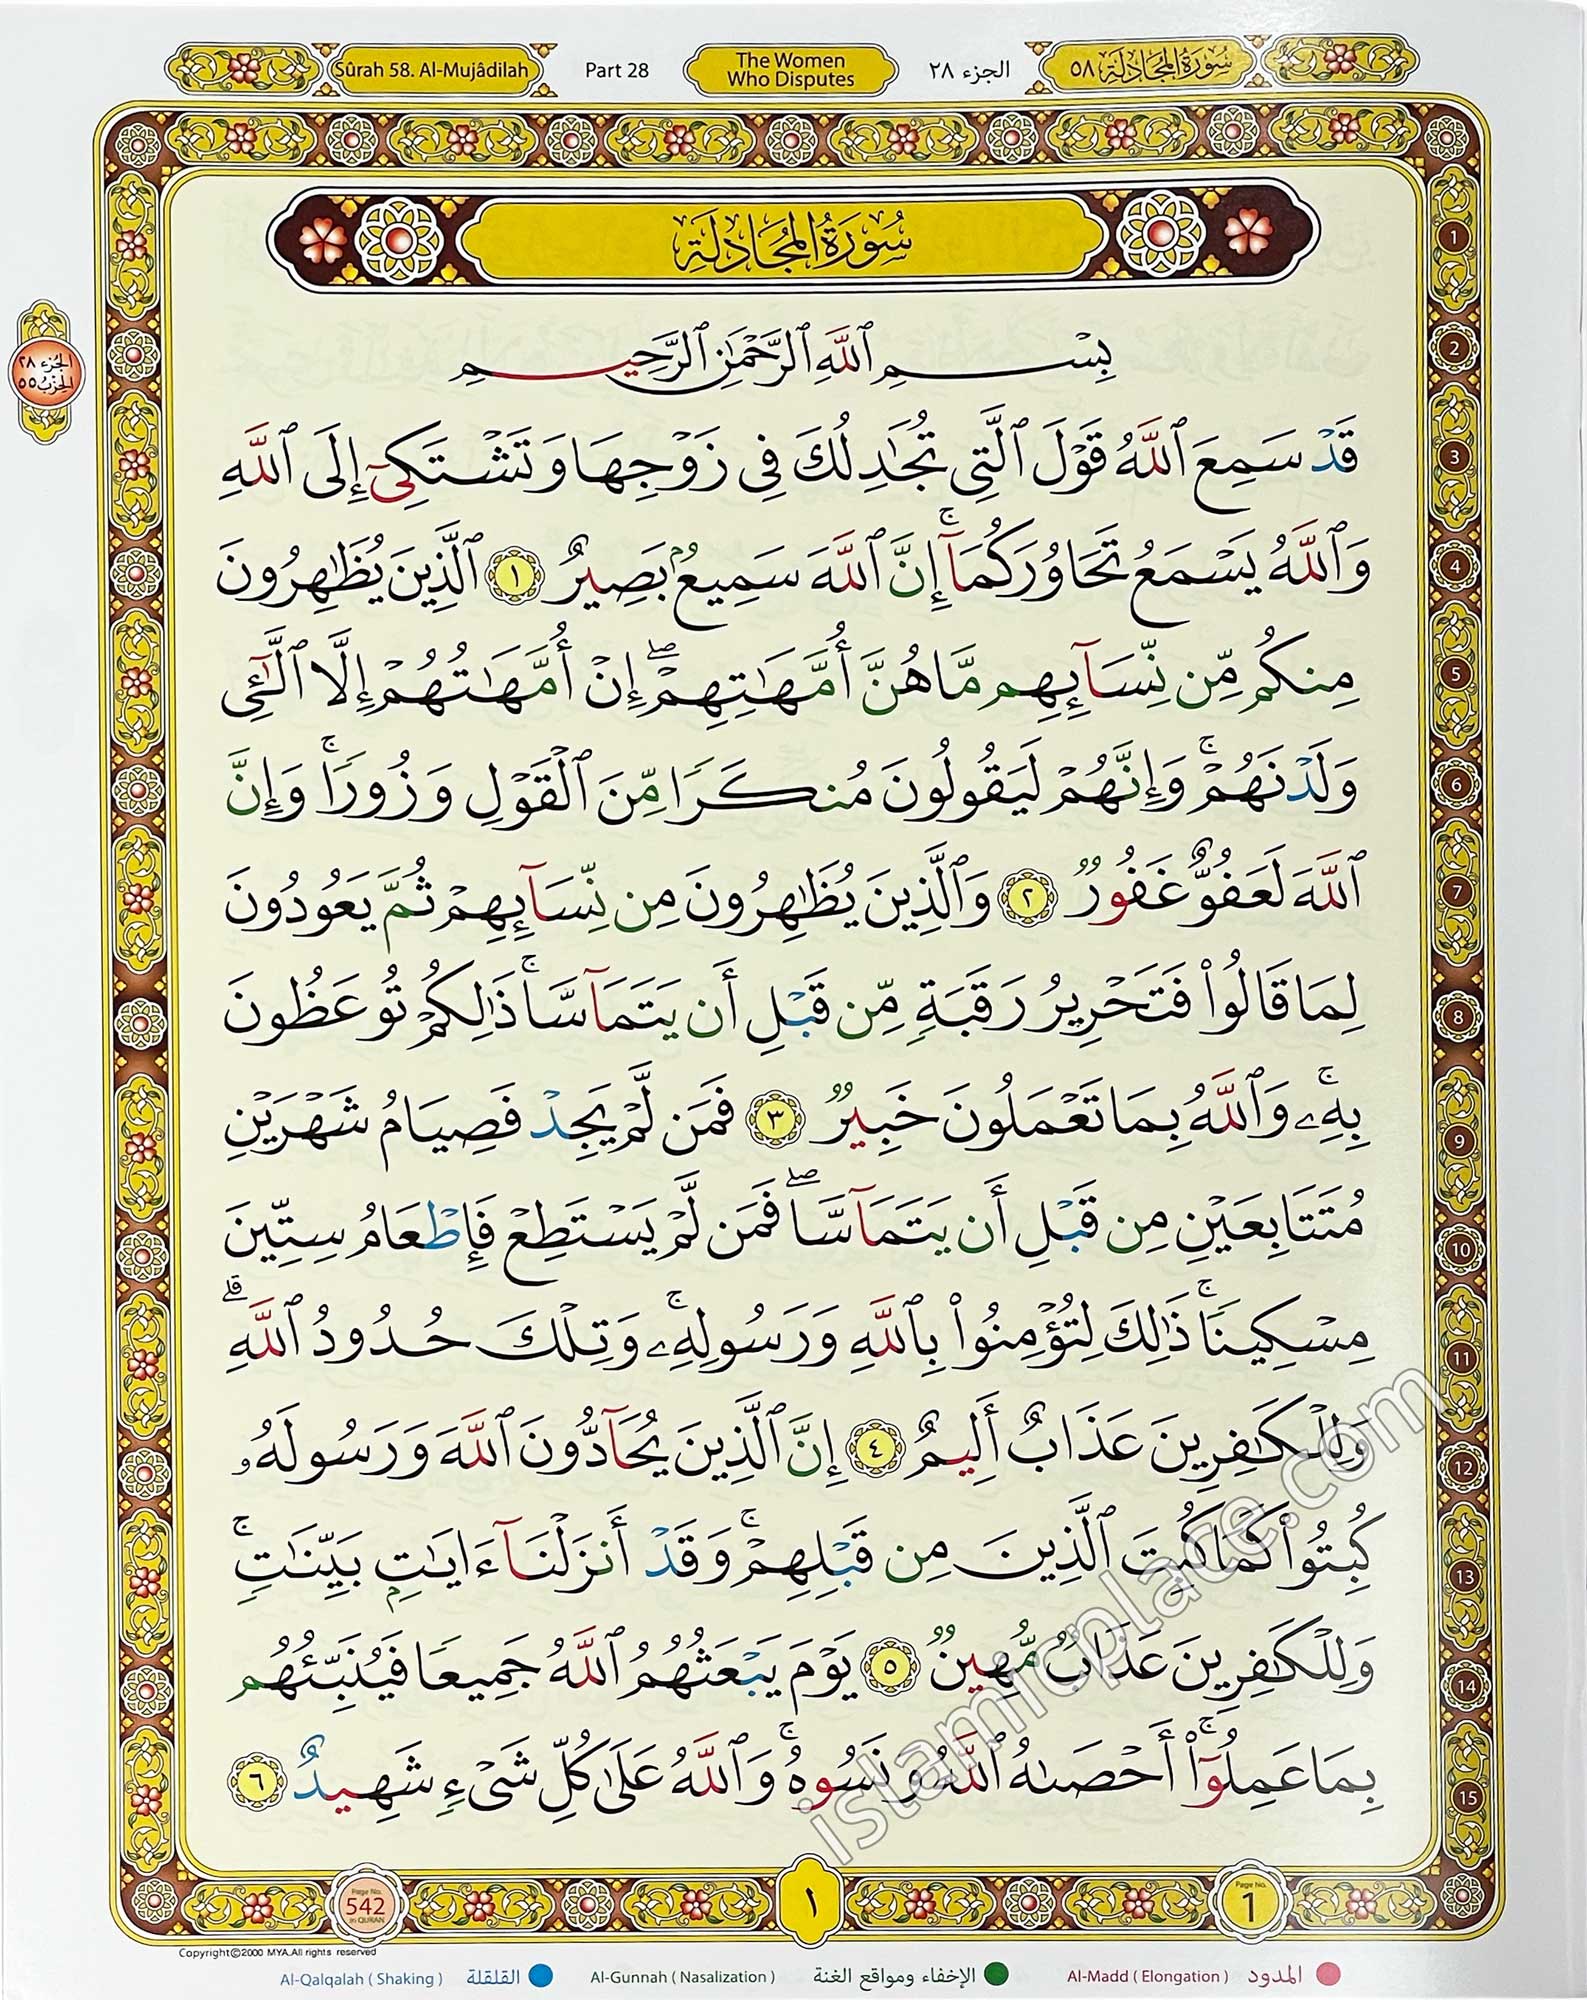 Sûrah 58. Al-Mujâdilah
Part 28
The Women
Who Disputes
الجزء ٢٨
سُورَةُ المُجَادلَة ٥٨
سُورَةُ المُجَادلَة
الجزء ٢٨
الحزب ٥٥
بِسْمِ ٱللَّهِ ٱلرَّحْمَٰنِ ٱلرَّحِيمِ
قَدْ سَمِعَ ٱللَّهُ قَوْلَ ٱلَّتِى تُجَٰدِلُكَ فِى زَوْجِهَا وَتَشْتَكِىٓ إِلَى ٱللَّهِ
وَٱللَّهُ يَسْمَعُ تَحَاوُرَكُمَآ ۚ إِنَّ ٱللَّهَ سَمِيعٌۢ بَصِيرٌ ١ ٱلَّذِينَ يُظَٰهِرُونَ
مِنكُم مِّن نِّسَآئِهِم مَّا هُنَّ أُمَّهَٰتِهِمْ ۖ إِنْ أُمَّهَٰتُهُمْ إِلَّا ٱلَّٰٓـِٔى
وَلَدْنَهُمْ ۚ وَإِنَّهُمْ لَيَقُولُونَ مُنكَرًا مِّنَ ٱلْقَوْلِ وَزُورًا ۚ وَإِنَّ
ٱللَّهَ لَعَفُوٌّ غَفُورٌ ٢ وَٱلَّذِينَ يُظَٰهِرُونَ مِن نِّسَآئِهِمْ ثُمَّ يَعُودُونَ
لِمَا قَالُوا۟ فَتَحْرِيرُ رَقَبَةٍ مِّن قَبْلِ أَن يَتَمَآسَّا ۚ ذَٰلِكُمْ تُوعَظُونَ
بِهِۦ ۚ وَٱللَّهُ بِمَا تَعْمَلُونَ خَبِيرٌ ٣ فَمَن لَّمْ يَجِدْ فَصِيَامُ شَهْرَيْنِ
مُتَتَابِعَيْنِ مِن قَبْلِ أَن يَتَمَآسَّا ۖ فَمَن لَّمْ يَسْتَطِعْ فَإِطْعَامُ سِتِّينَ
مِسْكِينًا ۚ ذَٰلِكَ لِتُؤْمِنُوا۟ بِٱللَّهِ وَرَسُولِهِۦ ۚ وَتِلْكَ حُدُودُ ٱللَّهِ ۗ
وَلِلْكَٰفِرِينَ عَذَابٌ أَلِيمٌ ٤ إِنَّ ٱلَّذِينَ يُحَآدُّونَ ٱللَّهَ وَرَسُولَهُۥ
كُبِتُوا۟ كَمَا كُبِتَ ٱلَّذِينَ مِن قَبْلِهِمْ ۚ وَقَدْ أَنزَلْنَآ ءَايَٰتٍۭ بَيِّنَٰتٍ ۚ
وَلِلْكَٰفِرِينَ عَذَابٌ مُّهِينٌ ٥ يَوْمَ يَبْعَثُهُمُ ٱللَّهُ جَمِيعًا فَيُنَبِّئُهُم
بِمَا عَمِلُوٓا۟ ۚ أَحْصَىٰهُ ٱللَّهُ وَنَسُوهُ ۚ وَٱللَّهُ عَلَىٰ كُلِّ شَىْءٍ شَهِيدٌ ٦
1
2
3
4
5
6
7
8
9
10
11
12
13
14
15
islamicplace.com
Page No.
542
in QURAN
١
Page No.
1
Copyright©2000 MYA.All rights reserved
Al-Qalqalah ( Shaking ) القلقلة
Al-Gunnah ( Nasalization ) الإخفاء ومواقع الغنة
Al-Madd ( Elongation ) المدود